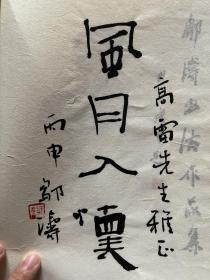 高雷先生雅正
風月入懷
丙申鄒濤
鄒濤書法作品集